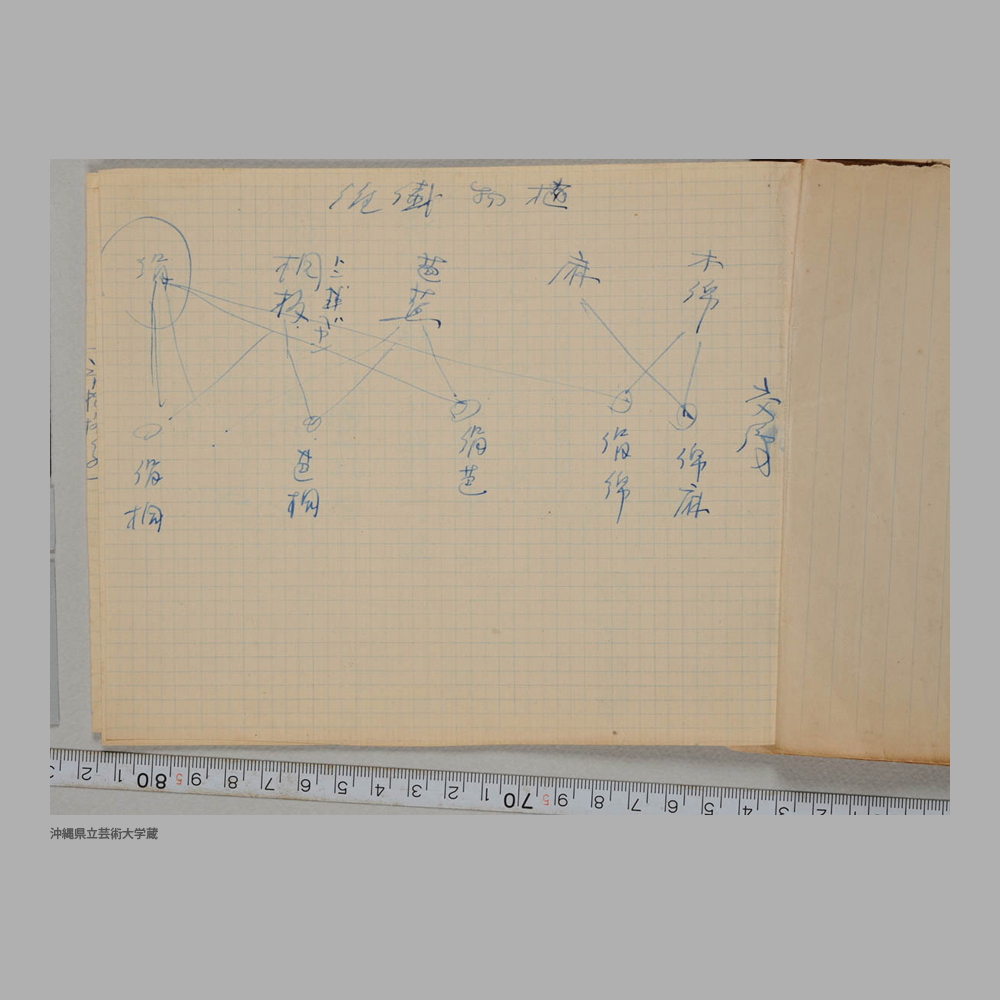 植物繊維
木綿
麻
芭蕉
桐板
絹
交織
綿麻
絹綿
絹芭
芭桐
絹桐
3 2 1 80 5 9 8 7 6 5 4 3 2 1 70 5 9 8 7 6 5 4 3
沖縄県立芸術大学蔵